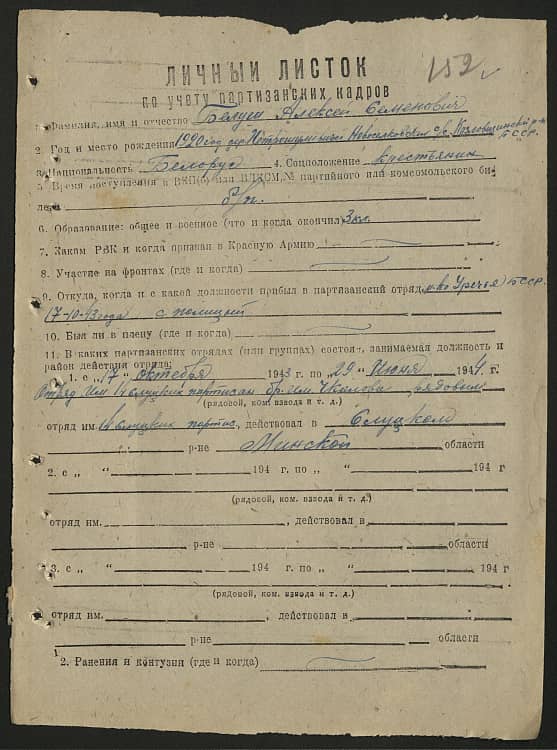 152
ЛИЧНЫЙ ЛИСТОК
по учету партизанских кадров
1. Фамилия, имя и отчество Белуш Алексей Семенович
2. Год и место рождения 1920 год Новоселковский с/с р-н
БССР.
3. Национальность Белорус 4. Соцположение крестьянин
5. Время поступления в ВКП(б) или ВЛКСМ, № партийного или комсомольского би-
лета б/п.
6. Образование: общее и военное (что и когда окончил) 3 кл.
7. Каким РВК и когда призван в Красную Армию
8. Участие на фронтах (где и когда)
9. Откуда, когда и с какой должности прибыл в партизанский отряд м-ко Уречье БССР.
17-10-43 года с полиции
10. Был ли в плену (где и когда)
11. В каких партизанских отрядах (или группах) состоял, занимаемая должность и
район действия отряда:
1. с „17“ октября 1943 г. по „29“ Июня 1944 г.
Отряд им 14 слуцких партизан бр. им. Чкалова рядовым
(рядовой, ком. взвода и т. д.)
отряд им. 14 слуцких партис, действовал в Слуцком
р-не Минской области
2. с „ “ 194 г. по „ “ 194 г
(рядовой, ком. взвода и т. д.)
отряд им. , действовал в
р-не области
3. с „ “ 194 г. по „ “ 194 г
(рядовой, ком. взвода и т. д.)
отряд им. , действовал в
р-не области
2. Ранения и контузия (где и когда)